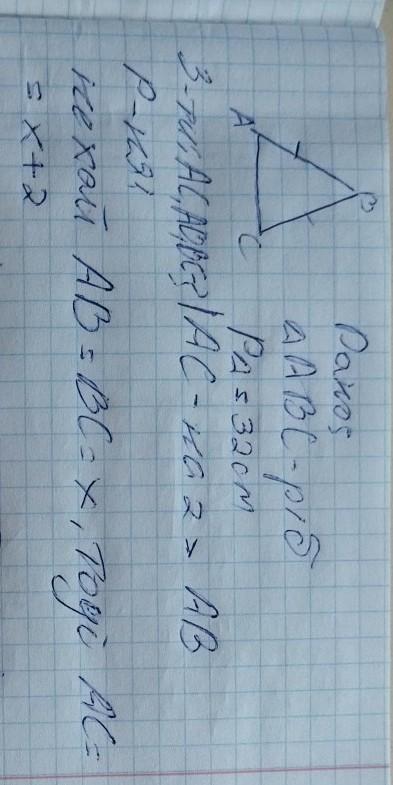 Дано:
△ABC - рів
P△ = 32 см
AC - на 2 > AB
З-ти AC, AB, BC-?
Р-ння
нехай AB = BC = x, тоді AC =
= x + 2
A
B
C